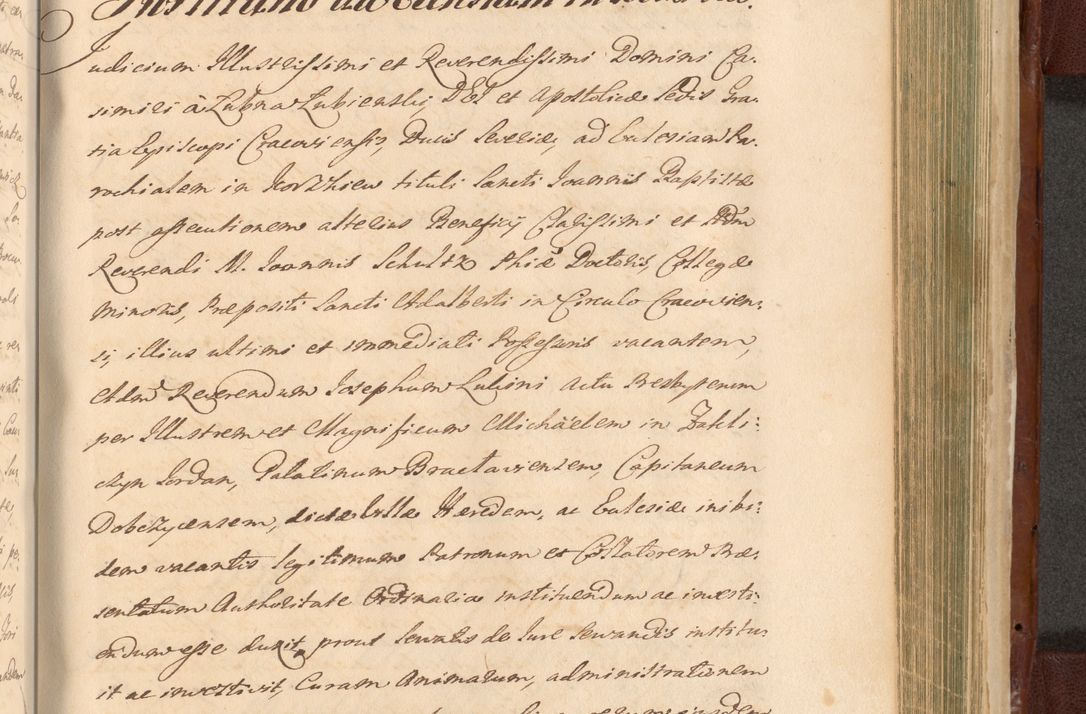 Judicium Illustrissimi et Reverendissimi Domini Ca-
simiri à Lubna Lubienskij DEI et Apostolicæ Sedis Gra-
tia Episcopi Cracoviensis, Ducis Severiæ, ad Ecclesiam Pa-
rochialem in tituli Sancti Joannis Baptistæ
post assecutionem alterius Beneficij Clarissimi et Adm
Reverendi M. Joannis Schultz Phiæ Doctoris, Collegæ
Minoris, Præpositi Sancti Adalberti in Circulo Cracovien:
si, illius ultimi et immediati Possessoris vacantem,
Adm Reverendum Josephum Lubini actu Presbyterum
per Illustrem et Magnificum Michäelem in Zakli:
czyn Jordan, Palatinum Braclaviensem, Capitaneum
Dobczycensem, dictæ Villæ Hæredem, ac Ecclesiæ inibi:
dem vacantis legitimum Patronum et Collatorem Præ:
sentatum Authoritate Ordinaria instituendum ac investi:
endum esse duxit, prout servatis de Jure servandis institu:
it ac investivit, Curam Animarum, administrationem